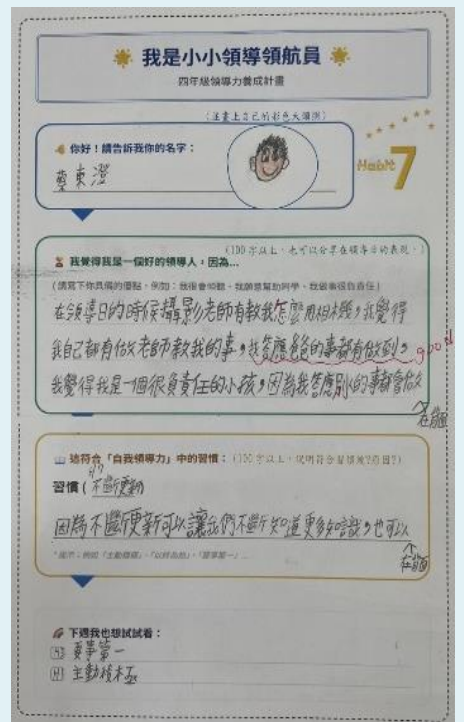 我是小小領導領航員
四年級領導力養成計畫
(並畫上自己的彩色大頭照)
你好！請告訴我你的名字：
蔡東澄
Habit 7
(100字以上，也可以分享在領導日的表現。)
我覺得我是一個好的領導人，因為...
(請寫下你具備的優點，例如：我很會傾聽、我願意幫助同學、我做事很負責任)
在領導日的時候攝影老師有教我怎麼用相機，我覺得
我自己都有做老師教我的事，我答應爸爸的事都有做到，
good
我覺得我是一個很負責任的小孩，因為我答應別人的事都會做
在背面
這符合「自我領導力」中的習慣：(100字以上，說明符合習慣幾?原因?)
習慣(不斷更新)
因為不斷更新可以讓我們不斷知道更多知識，也可以
在背面
下週我也想試試看：
H3 要事第一
H1 主動積極